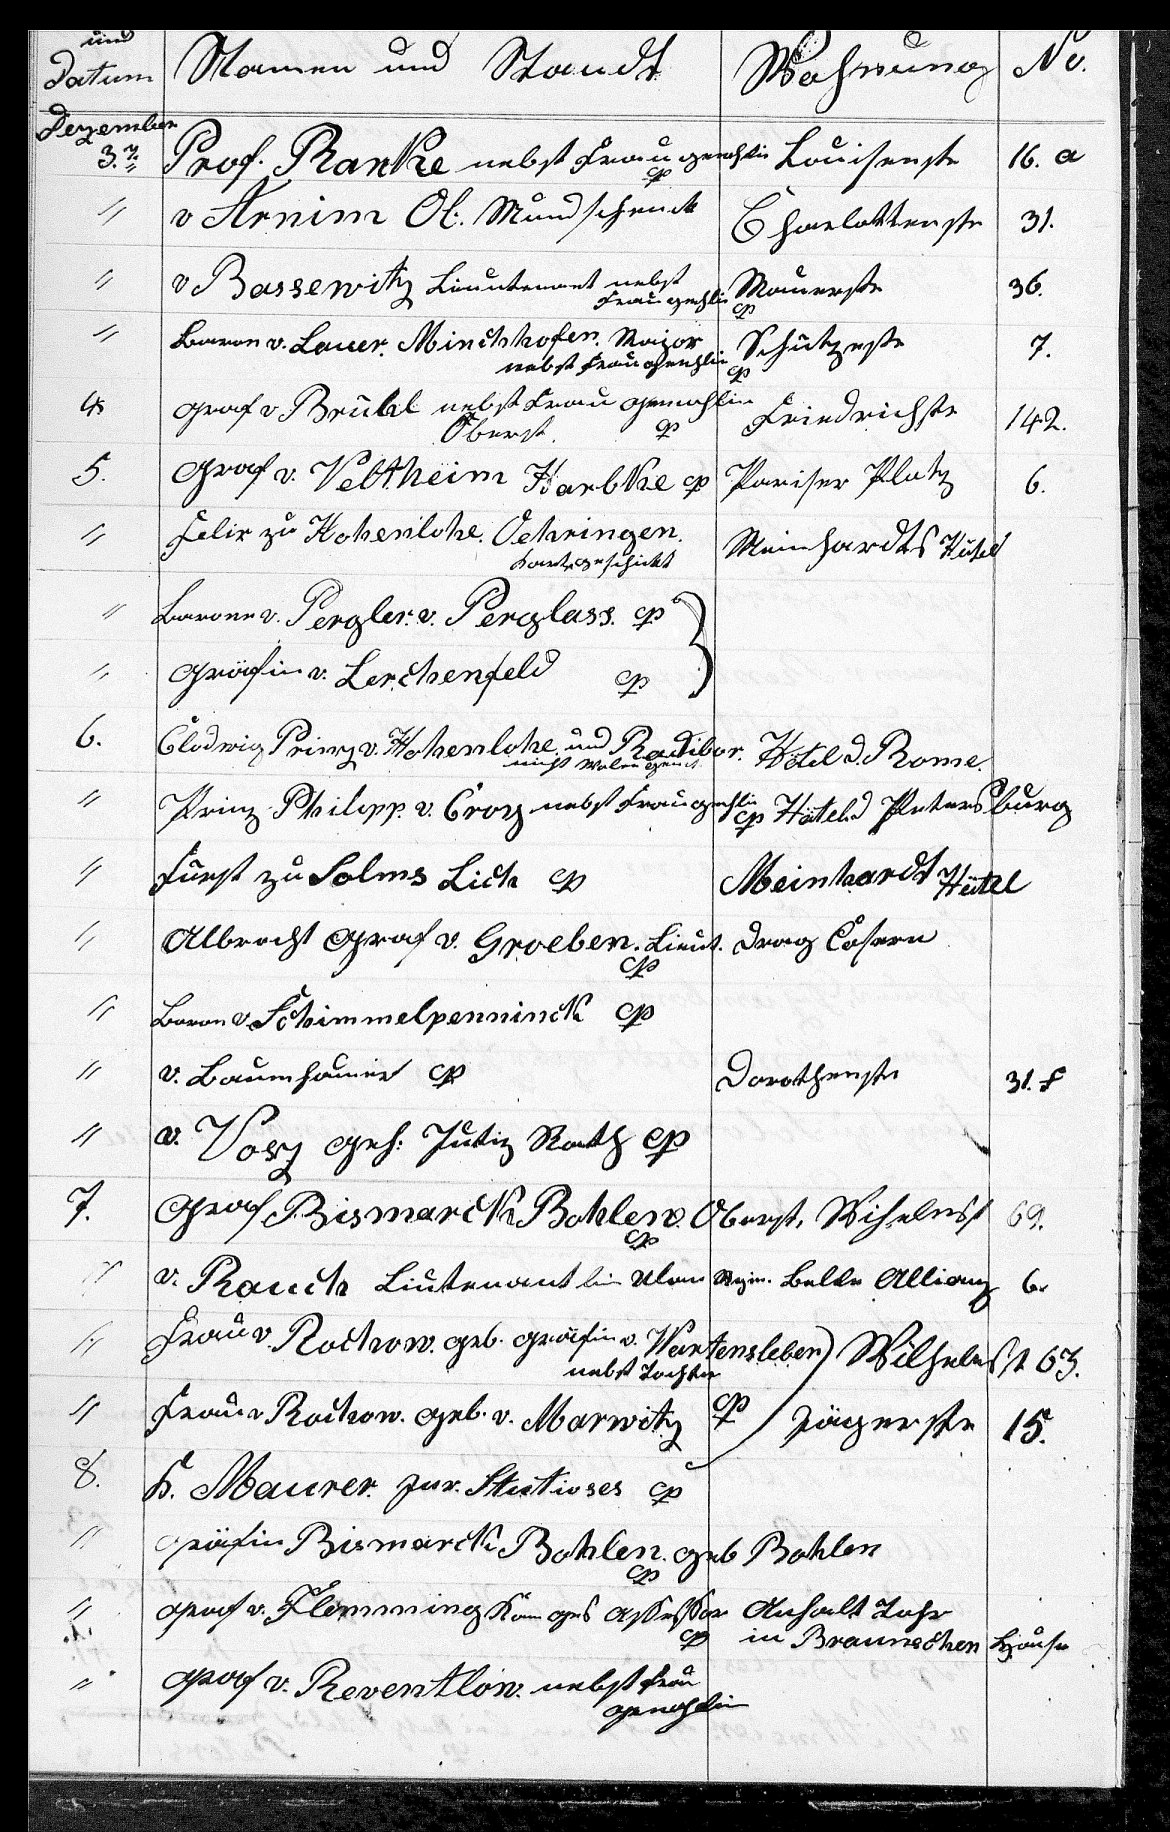 und
Datum Namen und Standt Wohnung No.
Dezember
3. Prof. Ranke nebst Frau gemahlin cp Louisenstr 16. a
" v Arnim Ob. Mundschenck Charlottenstr 31.
" v Bassewitz Lieutenant nebst Mauerstr 36.
Frau gmhlin cp
" Baron v. Lauer. Minchhofen. Major Schützestr 7.
nebst Frau gemhlin cp
4 Graf v Brühl nebst Frau gemahlin Friedrichstr 142.
Oberst. cp
5. Graf v. Veltheim Harbke cp Pariser Platz 6.
" Felix zu Hohenlohe. Oehringen. Meinhardts Hôtel
Kart. geschickt
" Baron v. Pergler. v. Perglass. cp
" Gräfin v. Lerchenfeld cp
6. Clodwig Prinz v. Hohenlohe und Radibor. Hôtel d. Rome.
" Prinz Philipp. v. Croy nebst Frau gmhlin cp Hôtel d Petersburg
" Fürst zu Solms Lich cp Meinhardt Hôtel
" Albrecht Graf v. Groeben. Lieut. Drag Casern
cp
" Baron v. Schimmelpenninck cp
" v. Baumhauer cp Dorothenstr 31. f
" v. Vosz geh: Jutiz Rath cp
7. Graf Bismarck Bohlen. Oberst. Wihelmst 69.
cp
" v. Rauch Liutenant bei Ulan Regim. Belle Allianz 6.
" Frau v. Rochow. geb. Gräfin v. Wartensleben) Wilhelmst 63.
nebst Tochter
" Frau v Rochow. geb. v. Marwitz cp Jägerstr 15.
8. H. Maurer. zur. Statioses cp
" Gräfin Bismarck Bohlen. geb Bohlen
cp
" Graf v. Flemming Kam ges Assessor Anhalt Tohr
cp in Braunschen Hause
" Graf v. Reventlow. nebst Frau
gemahlin